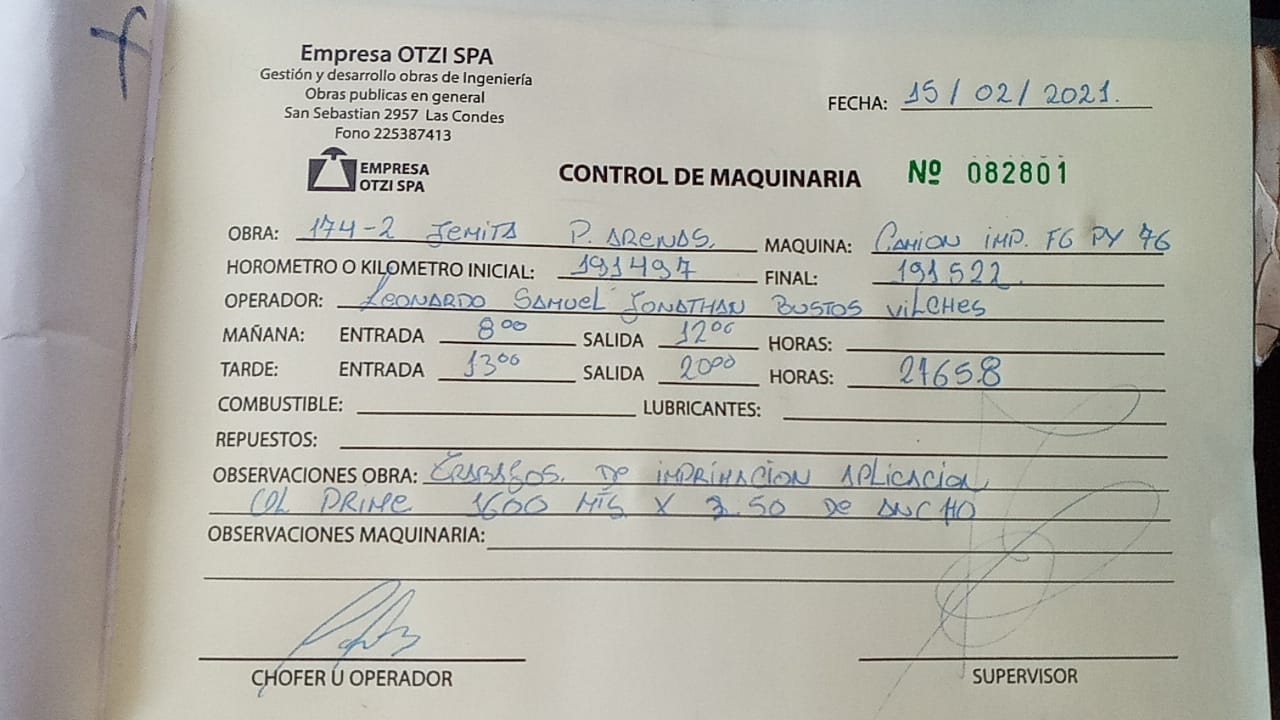 Empresa OTZI SPA
Gestión y desarrollo obras de Ingeniería
Obras publicas en general
San Sebastian 2957 Las Condes
Fono 225387413
FECHA: 15/02/2021.
EMPRESA
OTZI SPA
CONTROL DE MAQUINARIA Nº 082801
OBRA: 174-2 JEMITA P. ARENAS. MAQUINA: CAMION IMP. FG PY 76
HOROMETRO O KILOMETRO INICIAL: 191497 FINAL: 191522.
OPERADOR: LEONARDO SAMUEL JONATHAN BUSTOS VILCHES
MAÑANA: ENTRADA 8⁰⁰ SALIDA 12⁰⁰ HORAS:
TARDE: ENTRADA 13⁰⁰ SALIDA 20⁰⁰ HORAS: 21658
COMBUSTIBLE: LUBRICANTES:
REPUESTOS:
OBSERVACIONES OBRA: TRABAJOS. DE IMPRIMACION APLICACION
PRIME 1600 MTS X 3.50 DE ANCHO
OBSERVACIONES MAQUINARIA:
CHOFER U OPERADOR SUPERVISOR